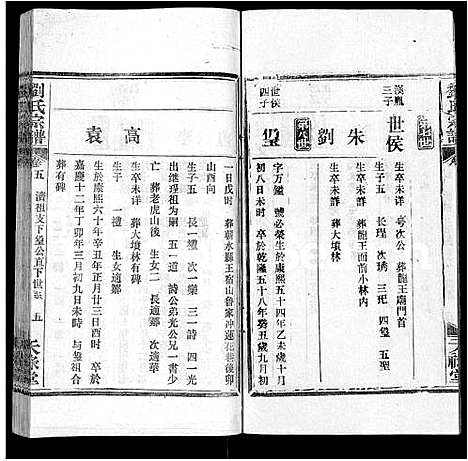 漢胤
三子
世侯
生卒未詳 号次公 葬龍王廟門首
生子五 長瑆 次琇 三玘 四璺 五聖
朱
生卒未詳 葬龍王面前小林内
劉
生卒未詳 葬大墳林
世侯
四子
字万鎰 號必榮生於康熙五十四年乙未歲十月
初八日未時 卒於乾隆五十八年癸丑歲九月初
一日戌時 葬蘄水縣王宿山魯家冲蓮花巷後卯
山酉向
生子六 長禮 次樂 三一詩 四一
出继理祖为嗣 五一道 詩公弟光公兄一書少
亡 葬老虎山後 生女二 長適鄒 次適華
高
生卒未詳 葬大墳林有碑
生子 一禮 生女適鄒
袁
生於康熙六十年辛丑年正月廿三日時 卒於
嘉慶十二年丁卯年三月初九日未時 与璺祖合
葬有碑
劉氏宗譜
卷五 濟祖支下璺公直下世系 五
天祿堂